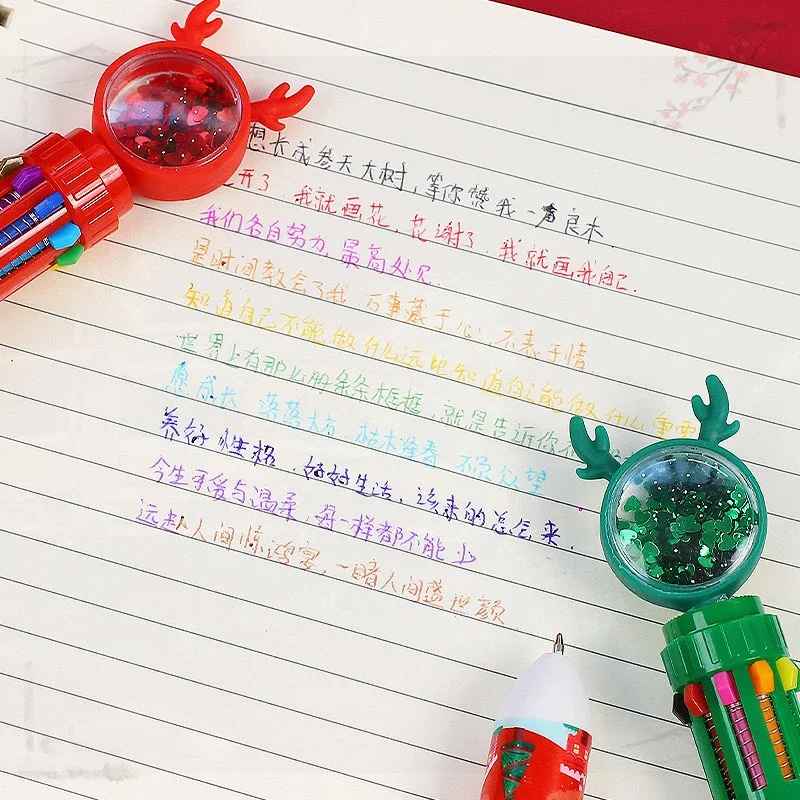 想长成参天大树，等你赞我一声良木.
开了 我就画花，花谢了 我就画我自己.
我们各自努力，最高处见
是时间教会了我 万事藏于心，不表于情.
知道自己不能做什么远比知道自己能做什么重要
世界上有那么多条条框框，就是告诉你不
愿成长 落落大方 枯木逢春 不负众望
养好性格，好好生活，该来的总会来.
今生可爱与温柔，每一样都不能少
远赴人间惊鸿宴，一睹人间盛世颜